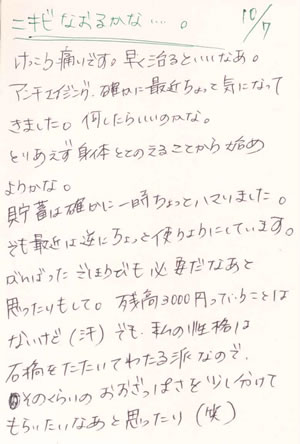 ニキビなおるかな….。 10/7
けっこう痛いです。早く治るといいなあ。
アンチエイジング、確かに最近ちょっと気になって
きました。何したらいいのかな。
とりあえず身体ととのえることから始め
ようかな。
貯蓄は確かに一時ちょっとハマりました。
でも最近は逆にちょっと使うようにしています。
がんばったごほうびも必要だなあと
思ったりもして。残高3000円っていうことは
ないけど(汗)でも、私の性格は
石橋をたたいてわたる派なので、
そのくらいのおおざっぱさを少し分けて
もらいたいなあと思ったり(笑)